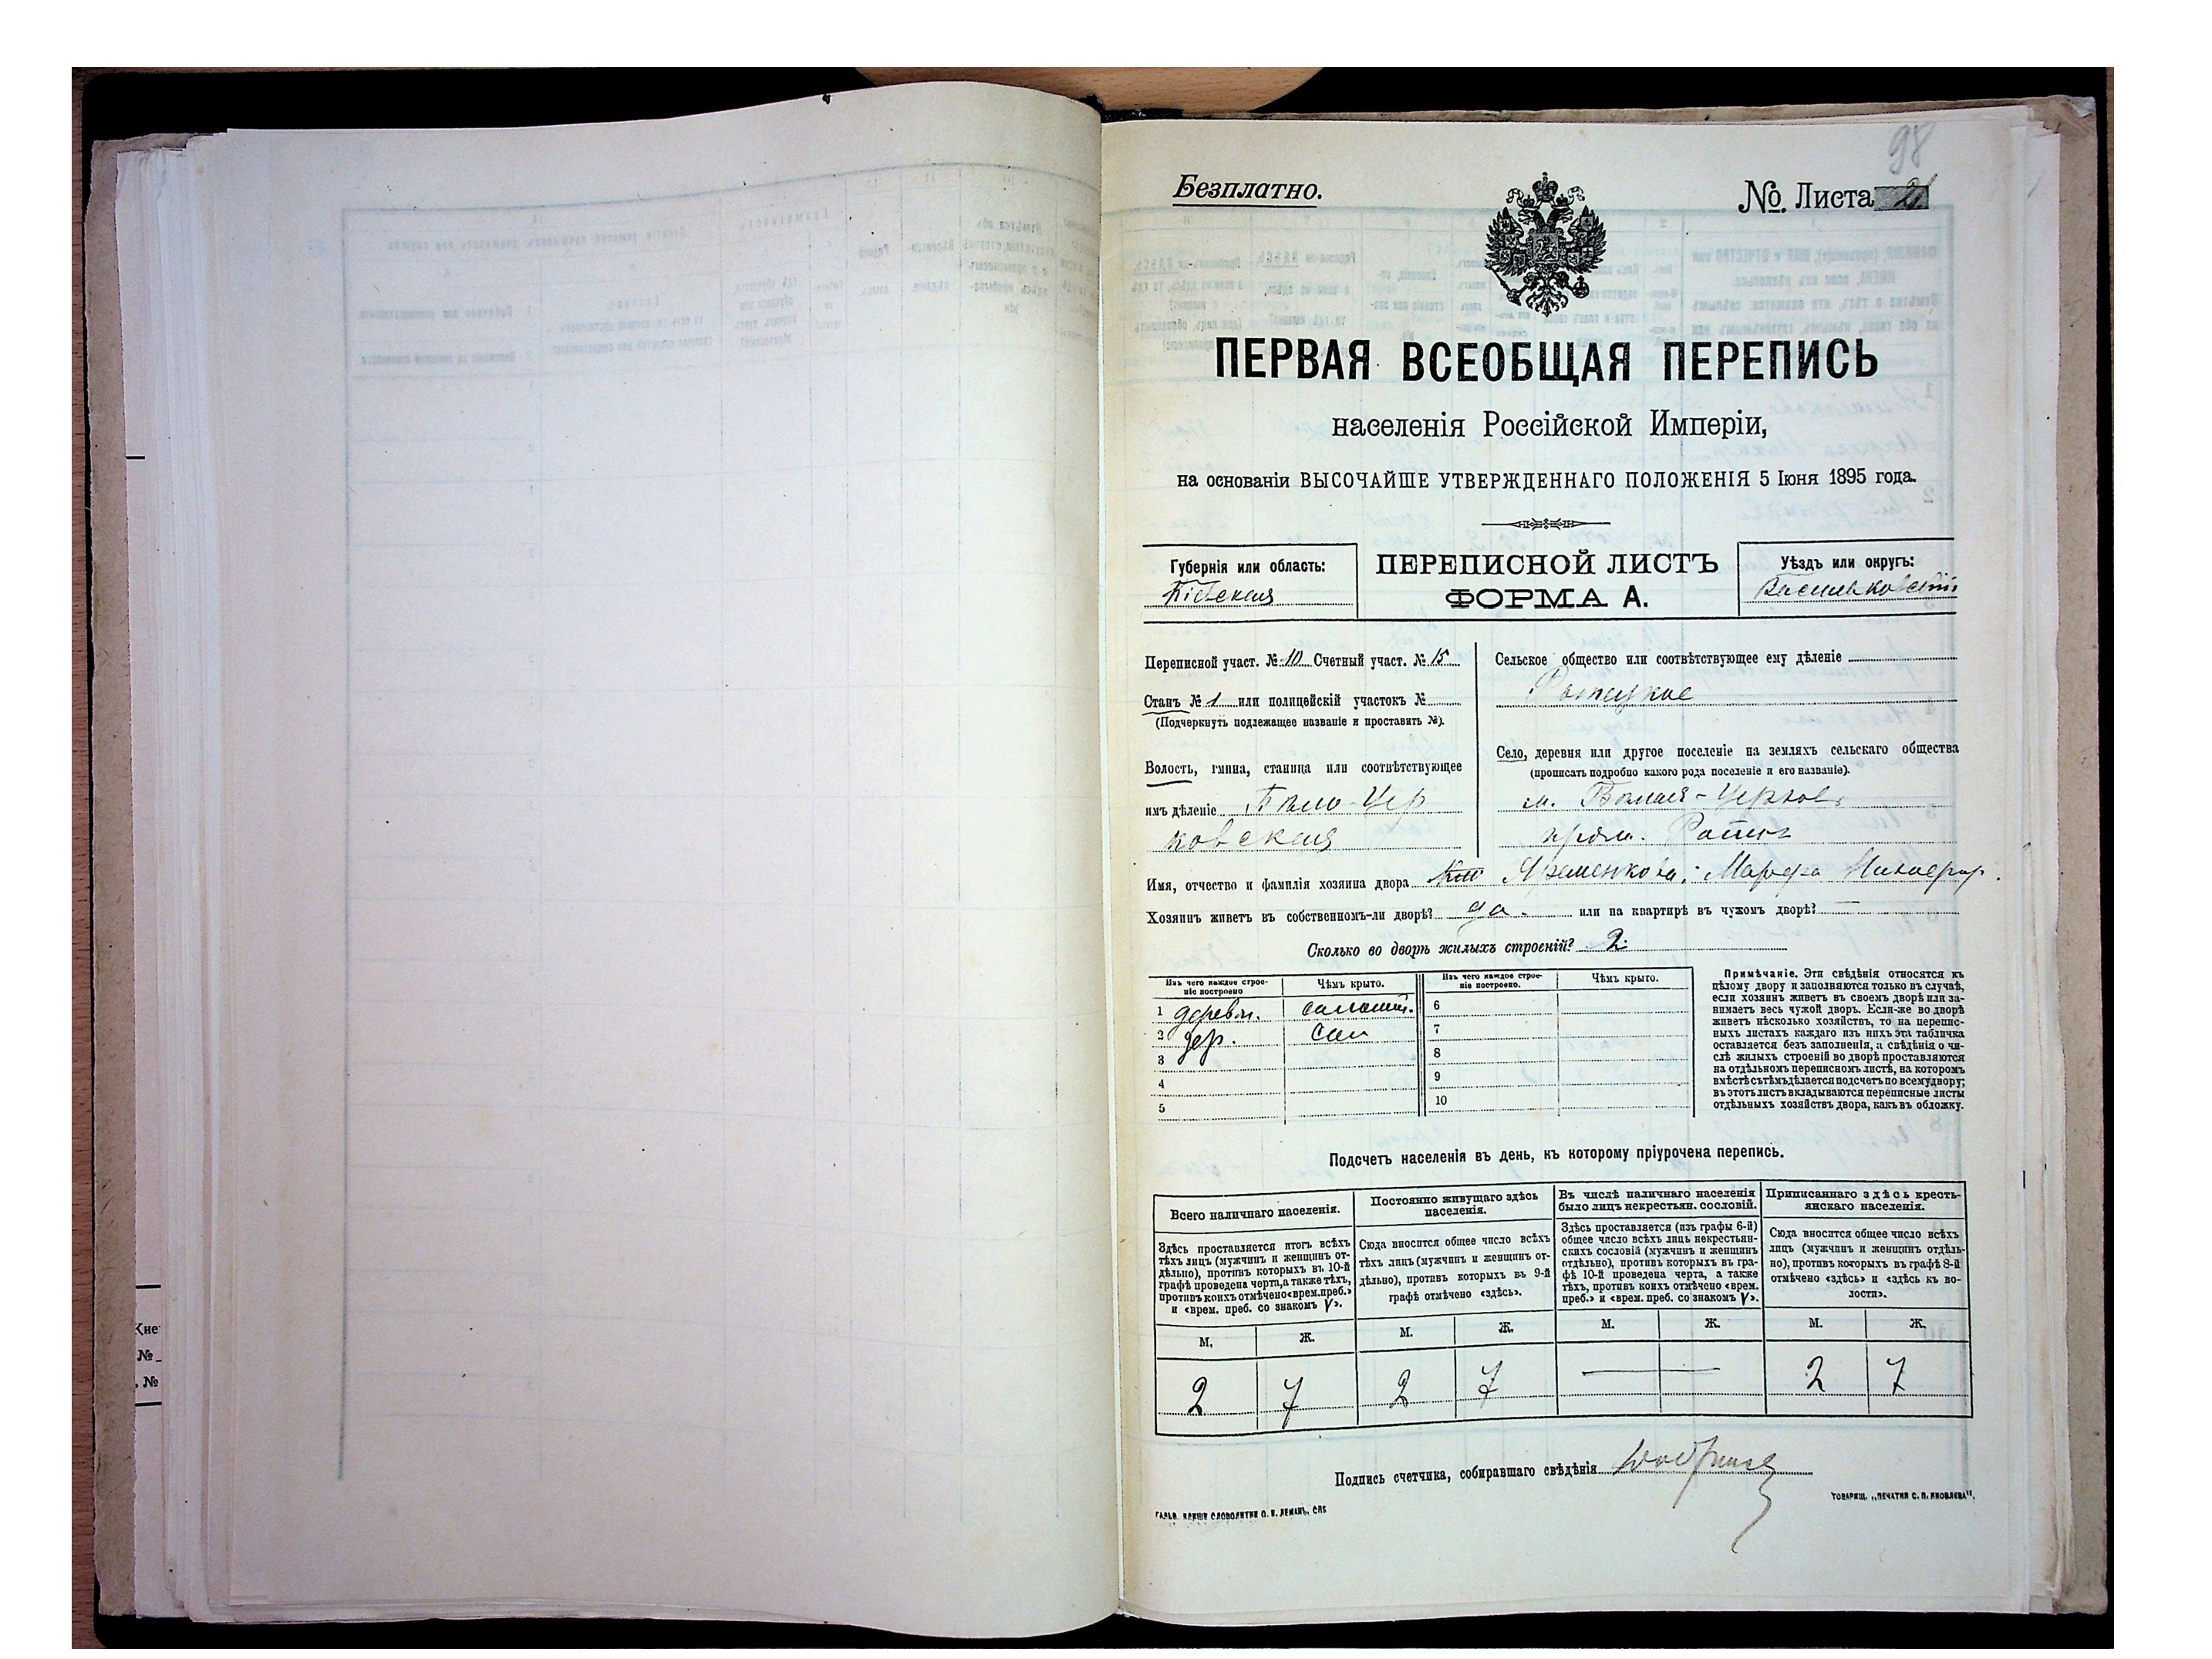 98
Безплатно.
№ Листа 21
ПЕРВАЯ ВСЕОБЩАЯ ПЕРЕПИСЬ
населенія Россійской Имперіи,
на основаніи ВЫСОЧАЙШЕ УТВЕРЖДЕННАГО ПОЛОЖЕНІЯ 5 Іюня 1895 года.
Губернія или область:
Кіевская
ПЕРЕПИСНОЙ ЛИСТЪ
ФОРМА А.
Уѣздъ или округъ:
Васильковскій
Переписной участ. № 10 Счетный участ. № 15
Станъ № 1 или полицейскій участокъ №
(Подчеркнуть подлежащее названіе и проставить №).
Волость, гмина, станица или соотвѣтствующее
имъ дѣленіе Бѣло-Цер
ковская
Сельское общество или соотвѣтствующее ему дѣленіе
Село, деревня или другое поселеніе на земляхъ сельскаго общества
(прописать подробно какого рода поселеніе и его названіе).
м. Бѣлая-Церковь
Имя, отчество и фамилія хозяина двора Яременкова Марфа
Хозяинъ живетъ въ собственномъ-ли дворѣ? да. или на квартирѣ въ чужомъ дворѣ? —
Сколько во дворѣ жилыхъ строеній? 2.
Изъ чего каждое строеніе построено
Чѣмъ крыто.
Изъ чего каждое строеніе построено.
Чѣмъ крыто.
1 дерев. солом.
2 дер. сол
3
4
5
6
7
8
9
10
Примѣчаніе. Эти свѣдѣнія относятся къ
цѣлому двору и заполняются только въ случаѣ,
если хозяинъ живетъ въ своемъ дворѣ или за-
нимаетъ весь чужой дворъ. Если-же во дворѣ
живетъ нѣсколько хозяйствъ, то на перепис-
ныхъ листахъ каждаго изъ нихъ эта табличка
оставляется безъ заполненія, а свѣдѣнія о чи-
слѣ жилыхъ строеній во дворѣ проставляются
на отдѣльномъ переписномъ листѣ, на которомъ
вмѣстѣ съ тѣмъ дѣлается подсчетъ по всему двору;
въ этотъ листъ вкладываются переписные листы
отдѣльныхъ хозяйствъ двора, какъ въ обложку.
Подсчетъ населенія въ день, къ которому пріурочена перепись.
Всего наличнаго населенія.
Постоянно живущаго здѣсь
населенія.
Въ числѣ наличнаго населенія
было лицъ некрестьян. сословій.
Приписаннаго здѣсь кресть-
янскаго населенія.
Здѣсь проставляется итогъ всѣхъ
тѣхъ лицъ (мужчинъ и женщинъ от-
дѣльно), противъ которыхъ въ 10-й
графѣ проведена черта, а также тѣхъ,
противъ коихъ отмѣчено «врем. преб.»
и «врем. преб. со знакомъ V».
Сюда вносится общее число всѣхъ
тѣхъ лицъ (мужчинъ и женщинъ от-
дѣльно), противъ которыхъ въ 9-й
графѣ отмѣчено «здѣсь».
Здѣсь проставляется (изъ графы 6-й)
общее число всѣхъ лицъ некрестьян-
скихъ сословій (мужчинъ и женщинъ
отдѣльно), противъ которыхъ въ гра-
фѣ 10-й проведена черта, а также
тѣхъ, противъ коихъ отмѣчено «врем.
преб.» и «врем. преб. со знакомъ V».
Сюда вносится общее число всѣхъ
лицъ (мужчинъ и женщинъ отдѣль-
но), противъ которыхъ въ графѣ 8-й
отмѣчено «здѣсь» и «здѣсь къ во-
лости».
М. Ж. М. Ж. М. Ж. М. Ж.
2 7 2 7 — 2 7
Подпись счетчика, собиравшаго свѣдѣнія
ТОВАРИЩ. „ПЕЧАТНЯ С. П. ЯКОВЛЕВА“.
ГАЛЬВ. КЛИШЕ СЛОВОЛИТНИ О. И. ЛЕМАНЪ, СПБ